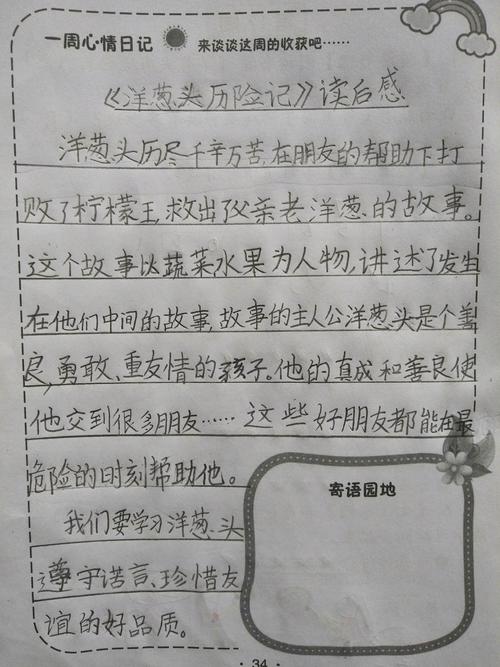 一周心情日记 来谈谈这周的收获吧……
《洋葱头历险记》读后感
洋葱头历尽千辛万苦,在朋友的帮助下打
败了柠檬王,救出了父亲老洋葱的故事。
这个故事以蔬菜水果为人物,讲述了发生
在他们中间的故事,故事的主人公洋葱头是个善
良,勇敢、重友情的孩子。他的真成和善良使
他交到很多朋友……这些好朋友都能在最
危险的时刻帮助他。
寄语园地
我们要学习洋葱头
遵守诺言、珍惜友
谊的好品质。
· 34 ·